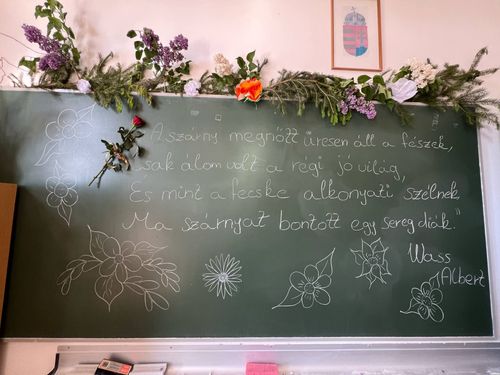 „A szárny megnőtt üresen áll a fészek,
csak álom volt a régi jó világ,
És mint a fecske alkonyati szélnek
Ma szárnyat bontott egy sereg diák."
Wass
Albert